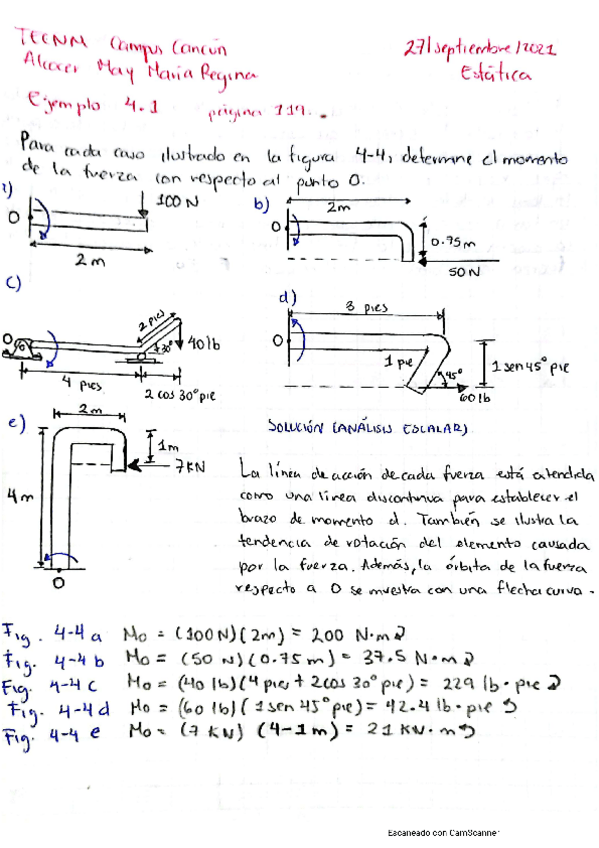 TECNM Campus Cancún
27/septiembre/2021
Alcocer May María Regina
Estática
Ejemplo 4.1 página 119.
Para cada caso ilustrado en la figura 4-4, determine el momento
de la fuerza con respecto al punto O.
a)
100 N
O
2 m
b)
2m
O
0.75 m
50 N
c)
O
2 pies
30°
40 lb
4 pies
2 cos 30° pie
d)
3 pies
O
1 pie
45°
1 sen 45° pie
60 lb
e)
2 m
1m
7KN
4 m
O
SOLUCIÓN (ANÁLISIS ESCALAR)
La línea de acción de cada fuerza está extendida
como una línea discontinua para establecer el
brazo de momento d. También se ilustra la
tendencia de rotación del elemento causada
por la fuerza. Además, la órbita de la fuerza
respecto a O se muestra con una flecha curva.
Fig. 4-4 a Mo = (100N)(2m) = 200 N·m ↻
Fig. 4-4 b Mo = (50 N)(0.75 m) = 37.5 N·m ↻
Fig. 4-4 c Mo = (40 lb)(4 pies + 2cos 30° pie) = 229 lb·pie ↻
Fig. 4-4 d Mo = (60 lb)(1 sen 45° pie) = 42.4 lb·pie ↺
Fig. 4-4 e Mo = (7 KN) (4-1m) = 21 KN·m ↺
Escaneado con CamScanner